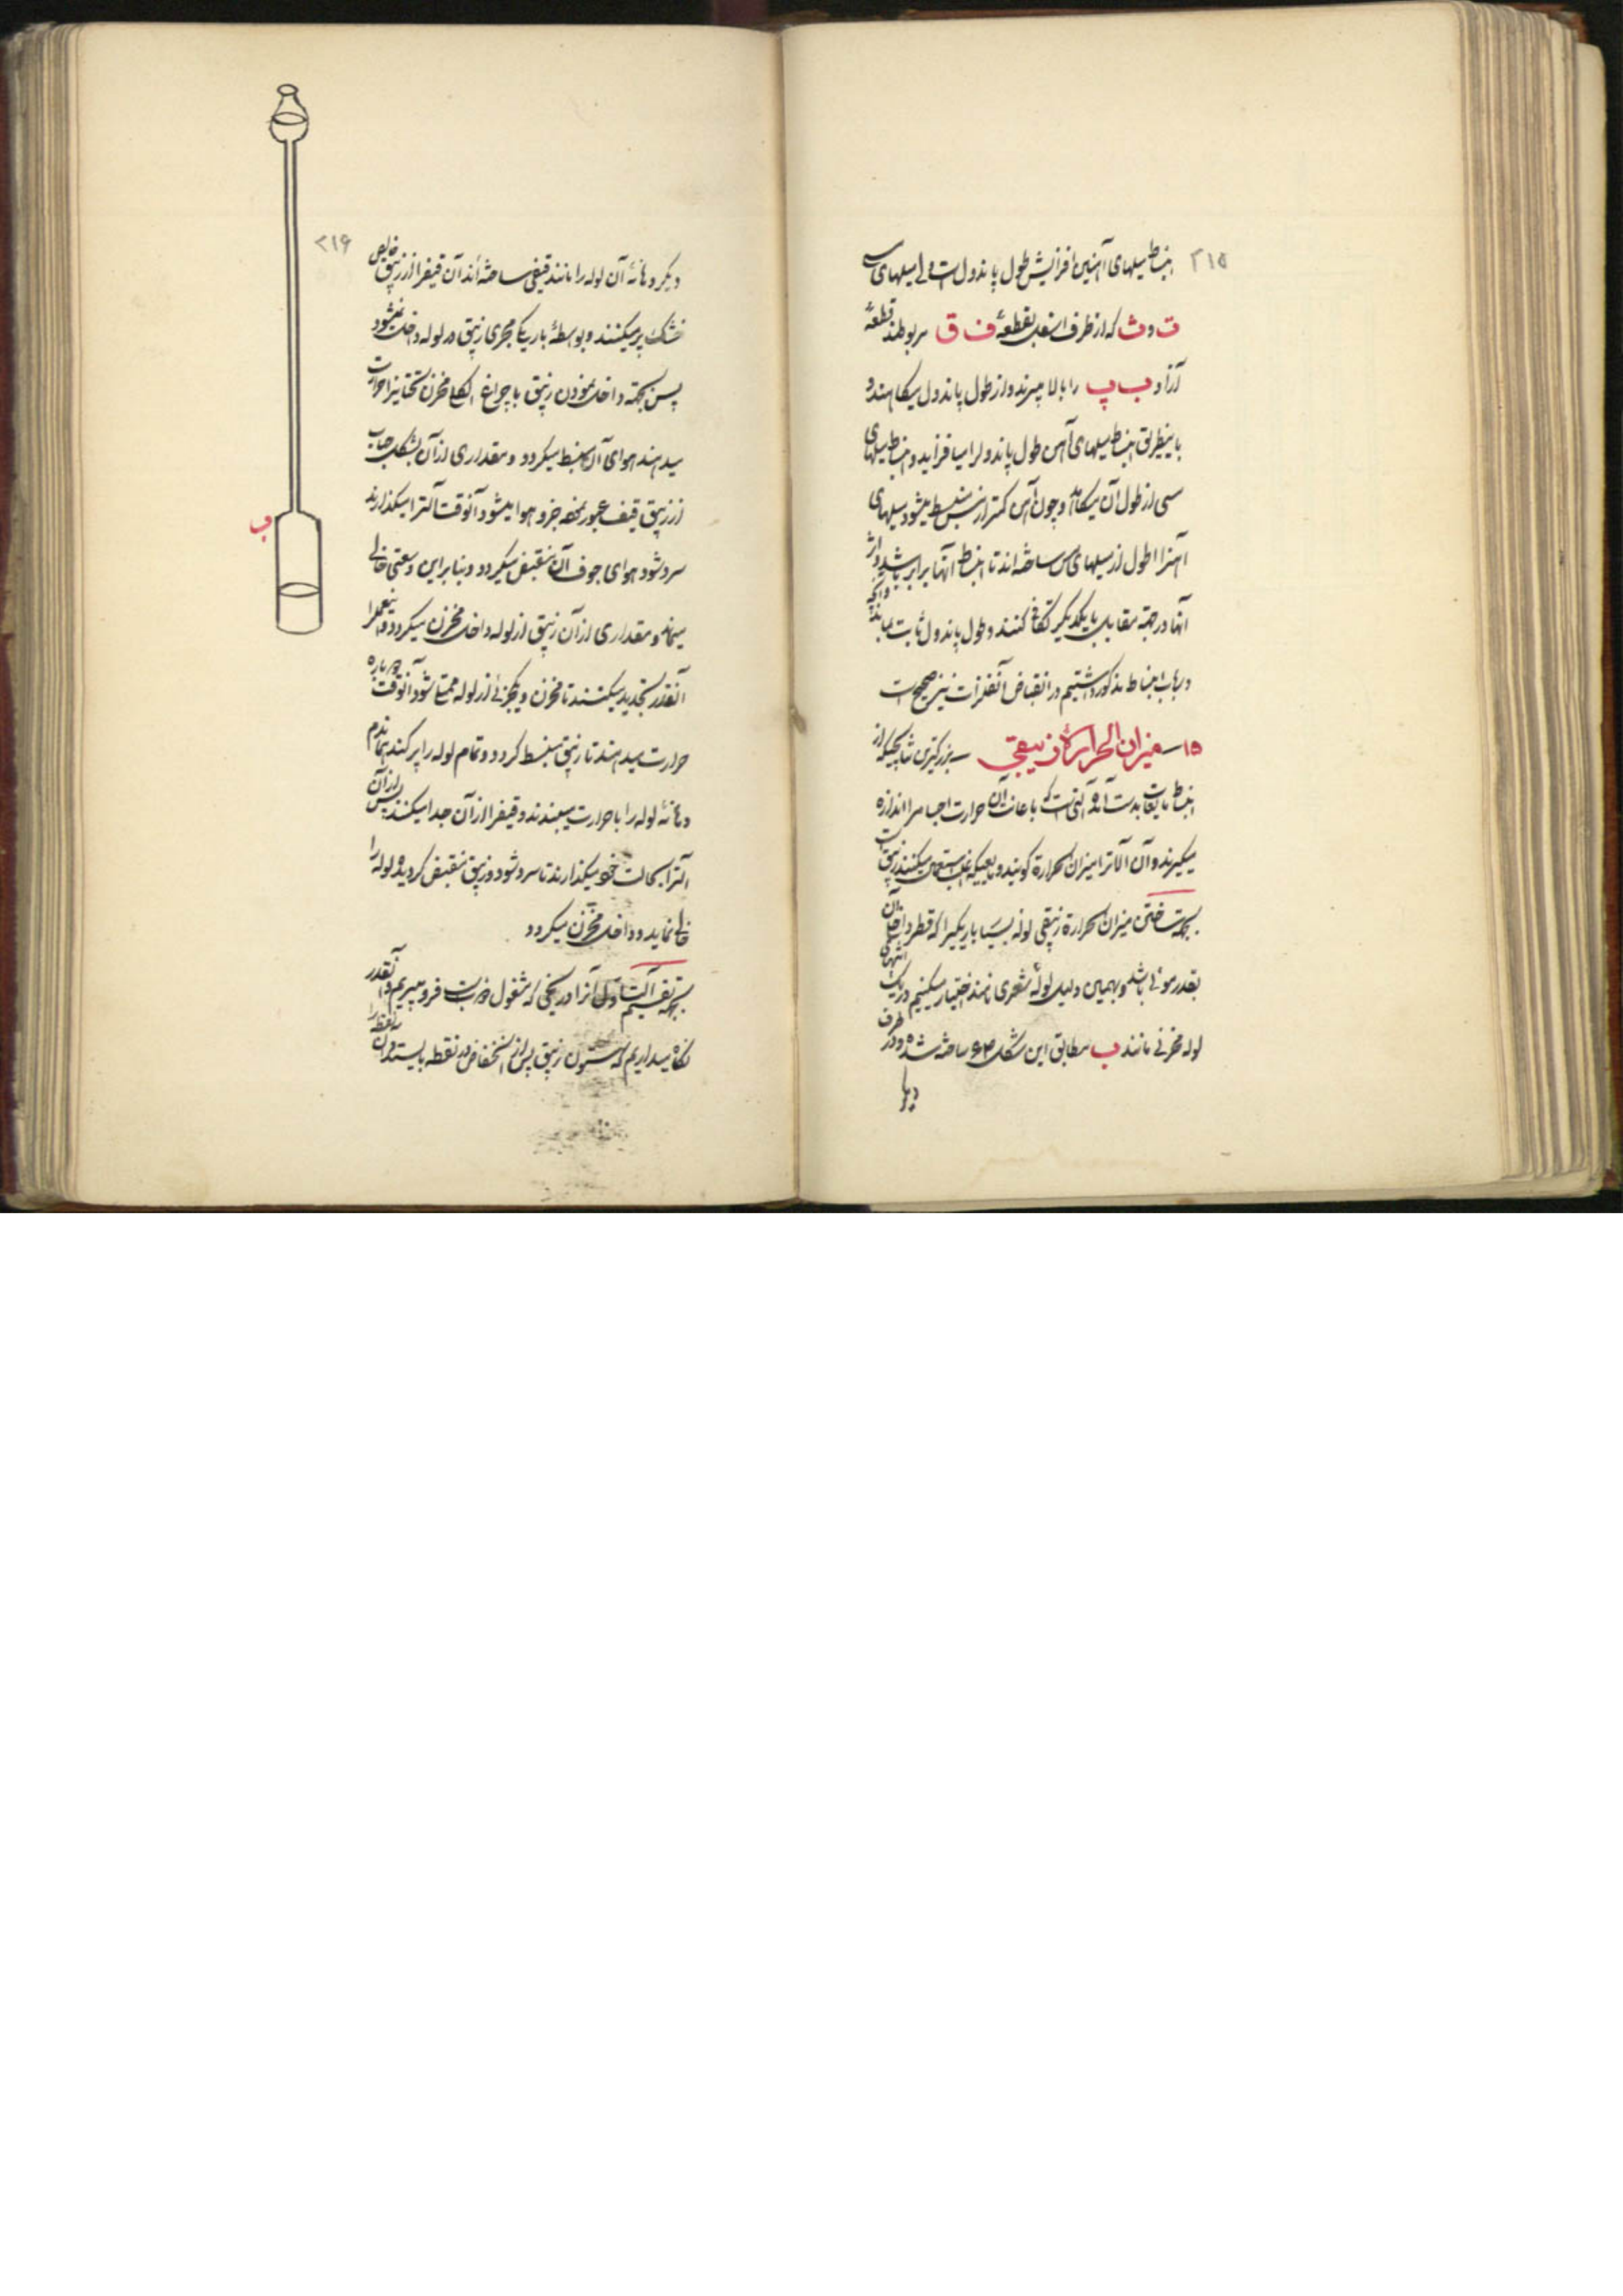 ۲۱۵
انبساط میلهای آهنین افزایش طول پاندول است ولی میلهای مس
ت و ث که از طرف اسفل بقطعهٔ ف ق مربوطند قطعهٔ
آزاد ب پ را بالا میبرند و از طول پاندول میکاهند و
باینطریق انبساط میلهای آهن طول پاندول را میافزاید و انبساط میلهای
مسی از طول آن میکاهد و چون آهن کمتر از مس منبسط میشود میلهای
آهنرا اطول از میلهای مس ساخته‌اند تا انبساط آنها برابر باشد و اثر
آنها در جهة مقابل با یکدیگر تکافی کنند و طول پاندول ثابت بماند و آنچه
در باب انبساط مذکور داشتیم در انقباض آنفلزات نیز صحیح است
۱۵ـ میزان الحرارة زیبقی ـ بزرگترین نتایجیکه از
انبساط مایعات بدست آمده آلتی است که باعانت آن حرارت اجسام را اندازه
میگیرند و آن آلاترا میزان الحرارة گویند و مایعیکه غالب استعمال میکنند زیبق است
بجهة ساختن میزان الحرارة زیبقی لولهٔ بسیار باریکیرا که قطر داخل آن
بقدر موئی باشد و بهمین دلیل لولهٔ شعری نامند اختیار میکنیم در یک انتهای
لوله مخزنی مانند ب مطابق این شکل ۶۳ ساخته شده و در طرف
دیگر
۲۱۶
دیگر دهانهٔ آن لوله را مانند قیفی ساخته‌اند آن قیفرا از زیبق خالص
خشک پر میکنند و بواسطهٔ باریکی مجری زیبق در لوله داخل نمیشود
پس بجهة داخل نمودن زیبق با چراغ الکلی مخزن تحتانیرا حرارت
میدهند هوای آن منبسط میگردد و مقداری از آن بشکل حباب
از زیبق قیف عبور نموده جزو هوا میشود آنوقت آلترا میگذارند
سرد شود هوای جوف آن منقبض میگردد و بنابراین وسعتی خالی
میماند و مقداری از آن زیبق از لوله داخل مخزن میگردد و اینعمل را
آنقدر تجدید میکنند تا مخزن و یکجزئی از لوله ممتلی شود آنوقت دوباره
حرارت میدهند تا زیبق منبسط گردد و تمام لوله را پر کند همان دم
دهانهٔ لوله را با حرارت میبندند و قیفرا از آن جدا میکنند پس از آن
آلترا بحالت خود میگذارند تا سرد شود و زیبق منقبض گردیده لوله را
خالی نماید و داخل مخزن میگردد
بجهة تقسیم آلت اول آنرا در یخی که مشغول ذوب است فرو میبریم و آنقدر
نگاه میداریم که ستون زیبق پس از انخفاض در نقطه بایستد و آن نقطه را
ب